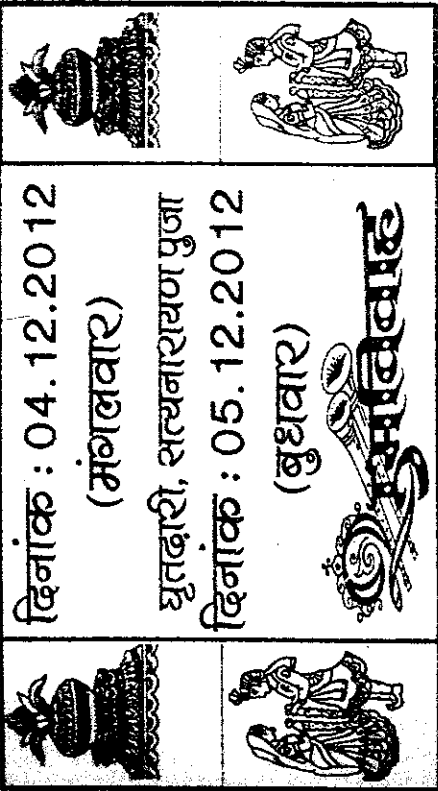 दिनांक : 04.12.2012
(मंगलवार)
घृतढ़ारी, सत्यनारायण पुजा
दिनांक : 05.12.2012
(बुधवार)
शुभविवाह